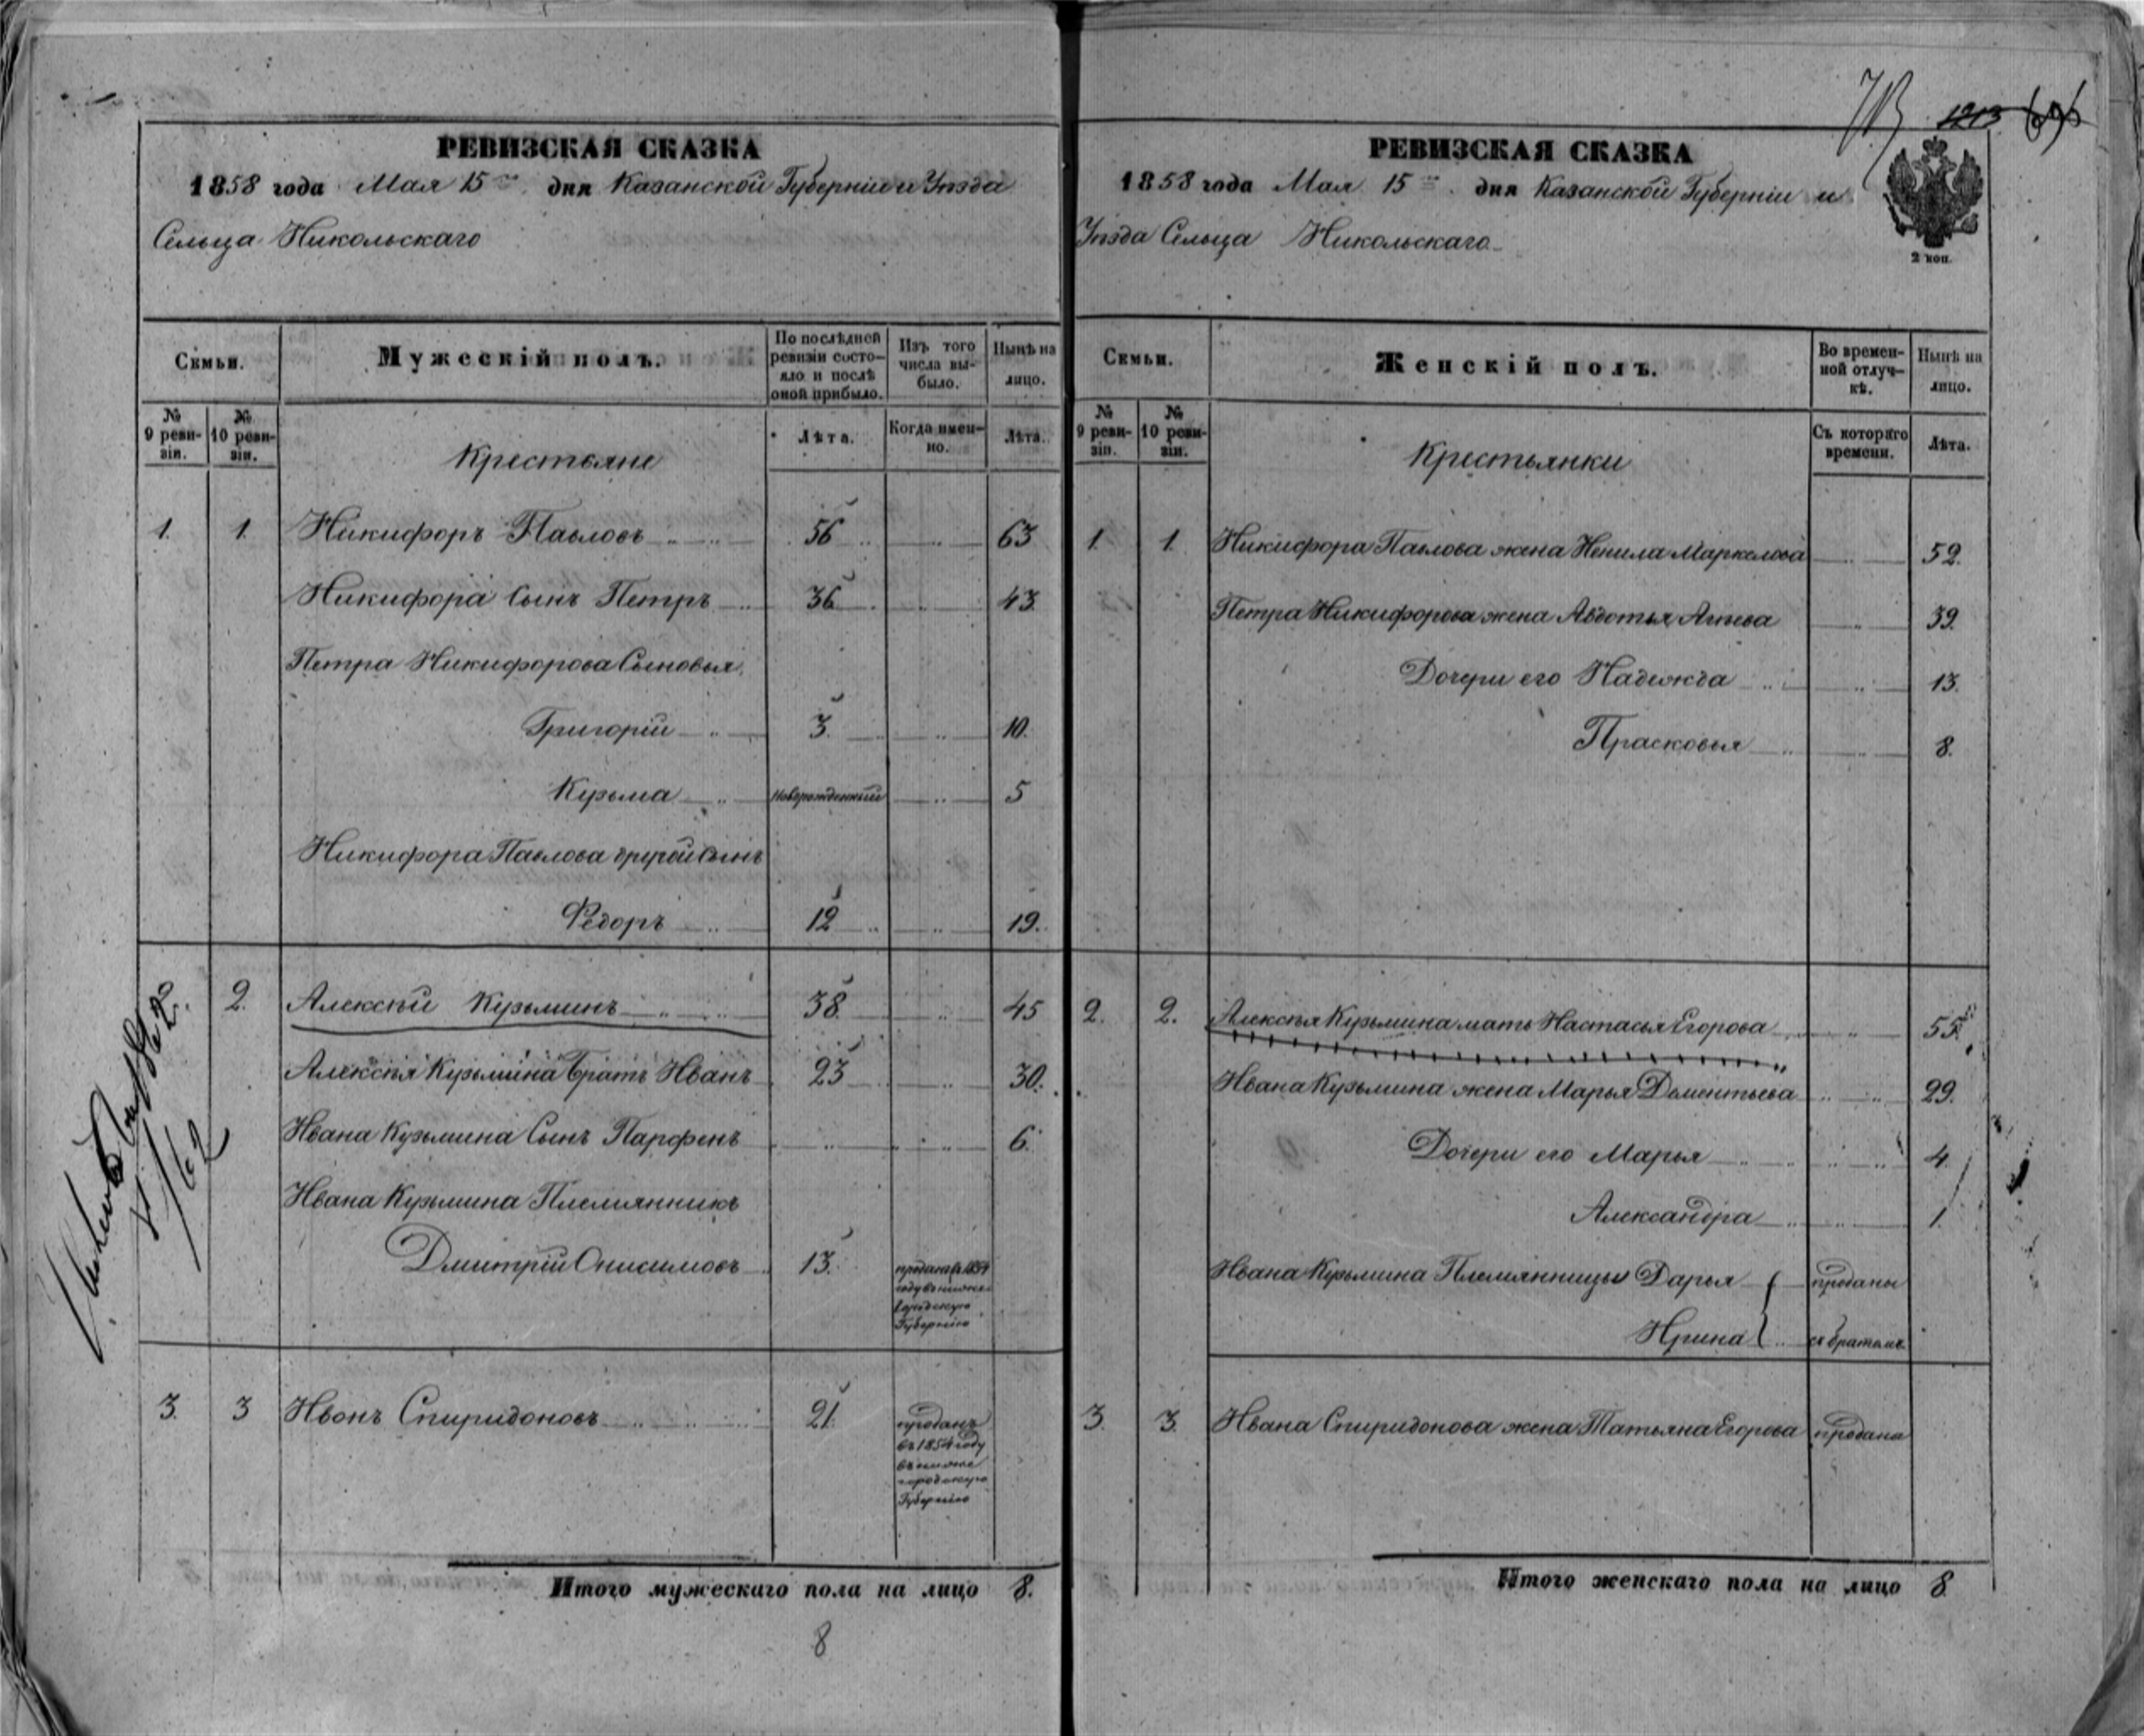 РЕВИЗСКАЯ СКАЗКА
1858 года Мая 15го дня Казанской Губерніи и Уѣзда
Сельца Никольскаго
Семьи.
Мужескій полъ.
По послѣдней ревизіи состояло и послѣ оной прибыло.
Изъ того числа выбыло.
Нынѣ на лицо.
№ 9 ревизіи.
№ 10 ревизіи.
Крестьяне
Лѣта.
Когда именно.
Лѣта.
1. 1. Никифоръ Павловъ 56 63
Никифора Сынъ Петръ 36 43
Петра Никифорова Сыновья,
Григорій 3. 10.
Кузьма новорожденный 5
Никифора Павлова другой Сынъ
Федоръ 12 19.
2. 2. Алексѣй Кузьминъ 38. 45
Алексѣя Кузьмина братъ Иванъ 23 30.
Ивана Кузьмина Сынъ Парфенъ 6.
Ивана Кузьмина Племянникъ
Дмитрій Онисимовъ 13. проданъ въ 1854
году въ ниже
городскую
Губернію
3. 3 Ивонъ Спиридоновъ 21. проданъ
въ 1854 году
въ ниже
городскую
Губернію
Итого мужескаго пола на лицо 8.
8
713 1213
РЕВИЗСКАЯ СКАЗКА
1858 года Мая 15го дня Казанской Губерніи и
Уѣзда Сельца Никольскаго
2 коп.
Семьи.
Женскій полъ.
Во временной отлучкѣ.
Нынѣ на лицо.
№ 9 ревизіи.
№ 10 ревизіи.
Крестьянки
Съ котораго времени.
Лѣта.
1. 1. Никифора Павлова жена Ненила Маркелова 52.
Петра Никифорова жена Авдотья 39.
Дочери его Надежда 13.
Прасковья 8.
2. 2. Алексѣя Кузьмина мать Настасья Егорова 55.
Ивана Кузьмина жена Марья Дементьева 29.
Дочери его Марья 4.
Александра 1.
Ивана Кузьмина Племянницы Дарья проданы
Ирина съ братомъ
3. 3. Ивана Спиридонова жена Татьяна Егорова продана
Итого женскаго пола на лицо 8.